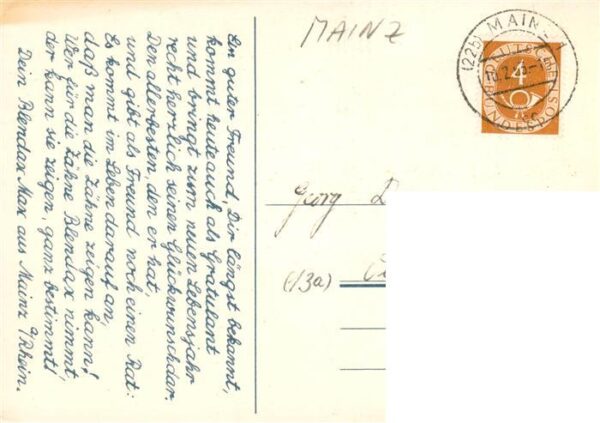 MAINZ
(22b) MAINZ 1
10.2.53-1
DEUTSCHE
BUNDESPOST
4
Ein guter Freund, Dir längst bekannt,
kommt heute auch als Gratulant
und bringt zum neuen Lebensjahr
recht herzlich seinen Glückwunsch dar.
Den allerbesten, den er hat,
und gibt als Freund noch einen Rat:
Es kommt im Leben darauf an,
daß man die Zähne zeigen kann!
Wer für die Zähne Blendax nimmt,
der kann sie zeigen, ganz bestimmt!
Dein Blendax Max aus Mainz a/Rhein.
Georg
(13a)